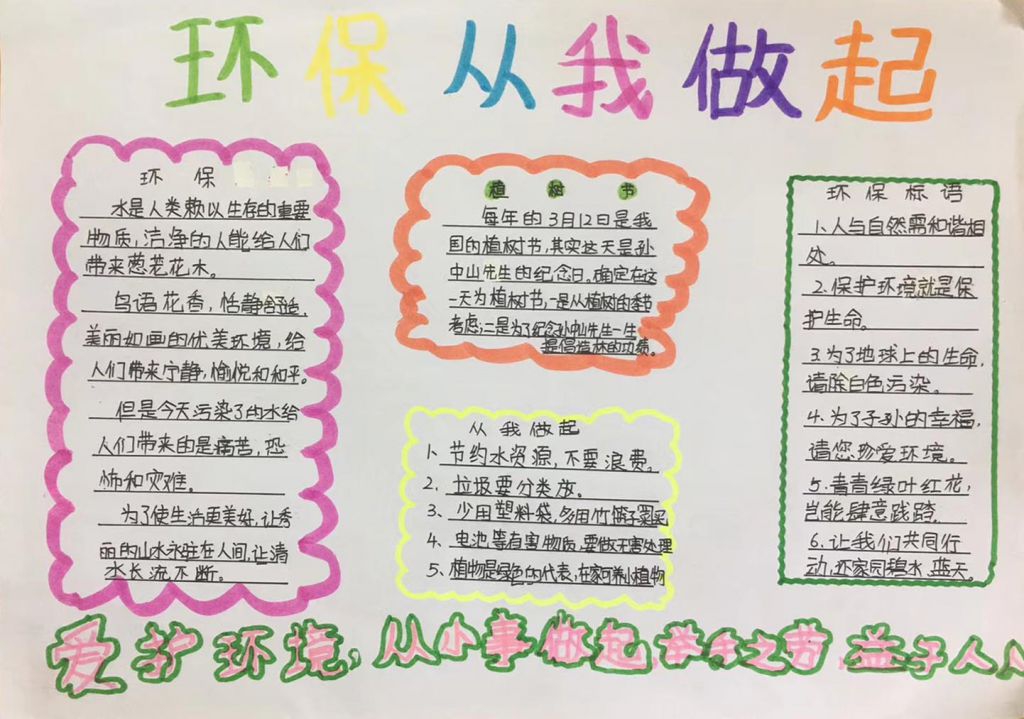 环保从我做起
环 保
水是人类赖以生存的重要
物质,洁净的人能给人们
带来葱茏花木。
鸟语花香,恬静舒适,
美丽如画的优美环境,给
人们带来宁静,愉悦和和平。
但是今天污染了的水给
人们带来的是痛苦,恐
怖和灾难。
为了使生活更美好,让秀
丽的山水永驻在人间,让清
水长流不断。
植 树 节
每年的3月12日是我
国的植树节,其实这天是孙
中山先生的纪念日。确定在这
一天为植树节,一是从植树的季节
考虑;二是为了纪念孙中山先生一生
提倡造林的功绩。
从我做起
1、节约水资源,不要浪费。
2、垃圾要分类放。
3、少用塑料袋,多用竹筐子
4、电池等有害物质,要做无害处理
5、植物是绿色的代表,在家可养小植物
环保标语
1.人与自然需和谐相
处。
2.保护环境就是保
护生命。
3.为了地球上的生命,
请除白色污染。
4.为了子孙的幸福,
请您珍爱环境。
5.青青绿叶红花,
岂能肆意践踏。
6.让我们共同行
动,还家园碧水蓝天。
爱护环境,从小事做起,举手之劳,益于人人